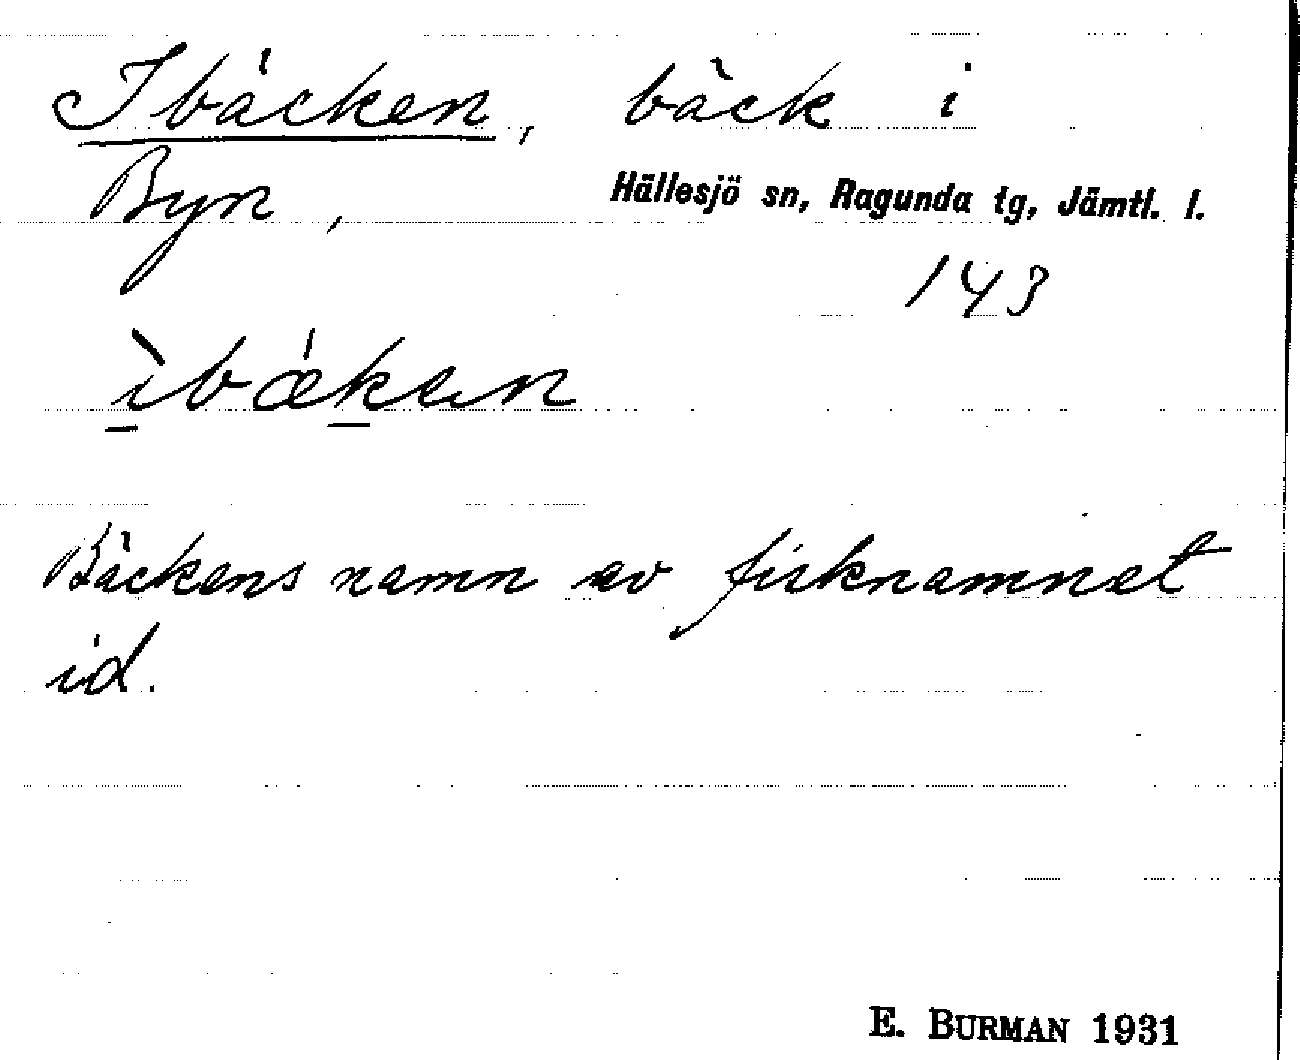 Ibäcken, bäck i
Byn, Hällesjö sn, Ragunda tg, Jämtl. l.
143
ìbæken
Bäckens namn av fisknamnet
id.
E. BURMAN 1931